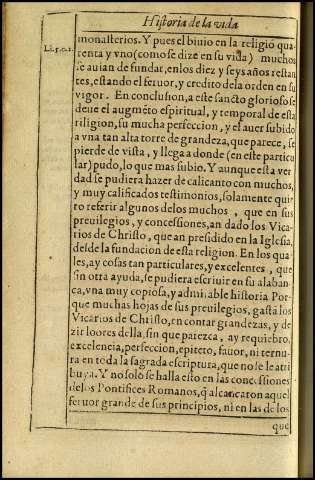 Historia de la vida
Li.5.c.1.
monasterios. Y pues el biuio en la religiō qua
renta y vno (como se dize en su vida) muchos
se auian de fundar, en los diez y seys años restan
tes, estando el feruor, y credito de la orden en su
vigor. En conclusion, a este sancto glorioso se
deue el augmēto espiritual, y temporal de esta
riligion, su mucha perfeccion, y el auer subido
a vna tan alta torre de grandeza, que parece, se
pierde de vista, y llega a donde (en este particu
lar) pudo, lo que mas subio. Y aunque esta ver
dad se pudiera hazer de calicanto con muchos,
y muy calificados testimonios, solamente quie
ro referir algunos de los muchos, que en sus
preuilegios, y concessiones, an dado los Vica
rios de Christo, que an presidido en la Iglesia,
desde la fundacion de esta religion. En los qua
les, ay cosas tan particulares, y excelentes, que
sin otra ayuda, se pudiera escriuir en su alaban
ca, vna muy copiosa, y admirable historia Por
que muchas hojas de sus preuilegios, gastā los
Vicarios de Christo, en contar grandezas, y de
zir loores della, sin que parezca, ay requiebro,
excelencia, perfeccion, epiteto, fauor, ni ternu
ra en toda la sagrada escriptura, que no se le atri
buya. Y no solo se halla esto en las concessiones
de los Pontifices Romanos, q̄ alcançaron aquel
feruor grande de sus principios, ni en las de los
que